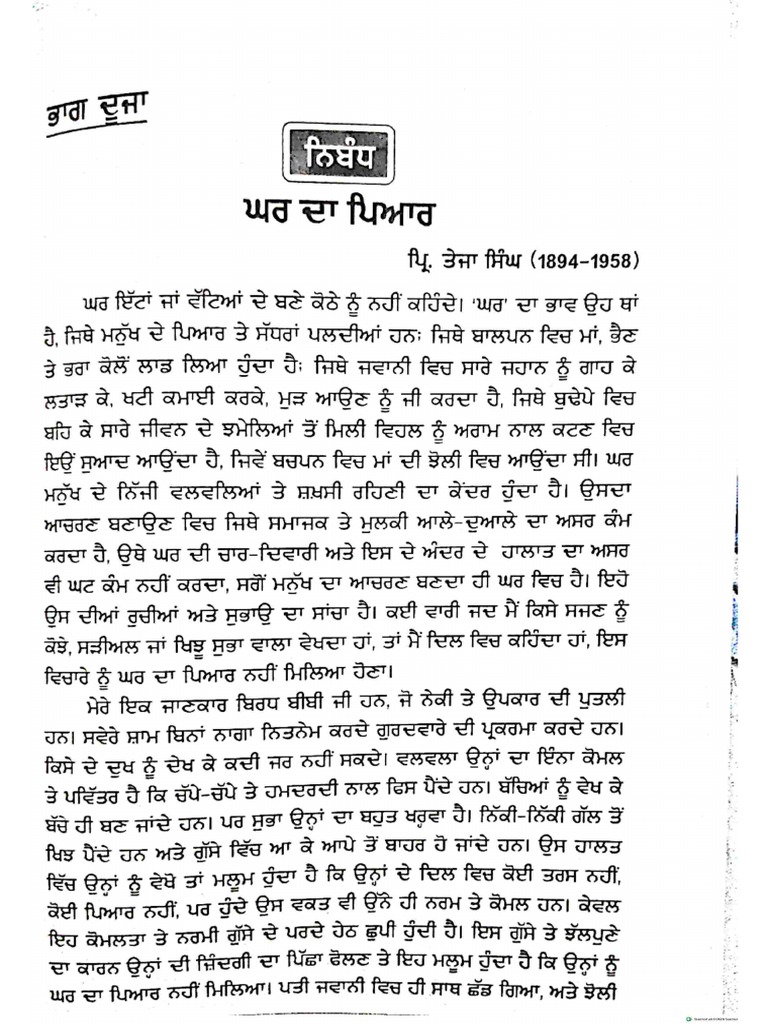 ਭਾਗ ਦੂਜਾ
ਨਿਬੰਧ
ਘਰ ਦਾ ਪਿਆਰ
ਪ੍ਰਿ. ਤੇਜਾ ਸਿੰਘ (1894-1958)
ਘਰ ਇੱਟਾਂ ਜਾਂ ਵੱਟਿਆਂ ਦੇ ਬਣੇ ਕੋਠੇ ਨੂੰ ਨਹੀਂ ਕਹਿੰਦੇ। 'ਘਰ' ਦਾ ਭਾਵ ਉਹ ਥਾਂ
ਹੈ, ਜਿਥੇ ਮਨੁੱਖ ਦੇ ਪਿਆਰ ਤੇ ਸੱਧਰਾਂ ਪਲਦੀਆਂ ਹਨ: ਜਿਥੇ ਬਾਲਪਨ ਵਿਚ ਮਾਂ, ਭੈਣ
ਤੇ ਭਰਾ ਕੋਲੋਂ ਲਾਡ ਲਿਆ ਹੁੰਦਾ ਹੈ: ਜਿਥੇ ਜਵਾਨੀ ਵਿਚ ਸਾਰੇ ਜਹਾਨ ਨੂੰ ਗਾਹ ਕੇ
ਲਤਾੜ ਕੇ, ਖਟੀ ਕਮਾਈ ਕਰਕੇ, ਮੁੜ ਆਉਣ ਨੂੰ ਜੀ ਕਰਦਾ ਹੈ, ਜਿਥੇ ਬੁਢੇਪੇ ਵਿਚ
ਬਹਿ ਕੇ ਸਾਰੇ ਜੀਵਨ ਦੇ ਝਮੇਲਿਆਂ ਤੋਂ ਮਿਲੀ ਵਿਹਲ ਨੂੰ ਅਰਾਮ ਨਾਲ ਕਟਣ ਵਿਚ
ਇਉਂ ਸੁਆਦ ਆਉਂਦਾ ਹੈ, ਜਿਵੇਂ ਬਚਪਨ ਵਿਚ ਮਾਂ ਦੀ ਝੋਲੀ ਵਿਚ ਆਉਂਦਾ ਸੀ। ਘਰ
ਮਨੁੱਖ ਦੇ ਨਿੱਜੀ ਵਲਵਲਿਆਂ ਤੇ ਸ਼ਖ਼ਸੀ ਰਹਿਣੀ ਦਾ ਕੇਂਦਰ ਹੁੰਦਾ ਹੈ। ਉਸਦਾ
ਆਚਰਣ ਬਣਾਉਣ ਵਿਚ ਜਿਥੇ ਸਮਾਜਕ ਤੇ ਮੁਲਕੀ ਆਲੇ-ਦੁਆਲੇ ਦਾ ਅਸਰ ਕੰਮ
ਕਰਦਾ ਹੈ, ਉਥੇ ਘਰ ਦੀ ਚਾਰ-ਦਿਵਾਰੀ ਅਤੇ ਇਸ ਦੇ ਅੰਦਰ ਦੇ ਹਾਲਾਤ ਦਾ ਅਸਰ
ਵੀ ਘਟ ਕੰਮ ਨਹੀਂ ਕਰਦਾ, ਸਗੋਂ ਮਨੁੱਖ ਦਾ ਆਚਰਣ ਬਣਦਾ ਹੀ ਘਰ ਵਿਚ ਹੈ। ਇਹੋ
ਉਸ ਦੀਆਂ ਰੁਚੀਆਂ ਅਤੇ ਸੁਭਾਉ ਦਾ ਸਾਂਚਾ ਹੈ। ਕਈ ਵਾਰੀ ਜਦ ਮੈਂ ਕਿਸੇ ਸਜਣ ਨੂੰ
ਕੋਝੇ, ਸੜੀਅਲ ਜਾਂ ਖਿਝੂ ਸੁਭਾ ਵਾਲਾ ਵੇਖਦਾ ਹਾਂ, ਤਾਂ ਮੈਂ ਦਿਲ ਵਿਚ ਕਹਿੰਦਾ ਹਾਂ, ਇਸ
ਵਿਚਾਰੇ ਨੂੰ ਘਰ ਦਾ ਪਿਆਰ ਨਹੀਂ ਮਿਲਿਆ ਹੋਣਾ।
ਮੇਰੇ ਇਕ ਜਾਣਕਾਰ ਬਿਰਧ ਬੀਬੀ ਜੀ ਹਨ, ਜੋ ਨੇਕੀ ਤੇ ਉਪਕਾਰ ਦੀ ਪੁਤਲੀ
ਹਨ। ਸਵੇਰੇ ਸ਼ਾਮ ਬਿਨਾਂ ਨਾਗਾ ਨਿਤਨੇਮ ਕਰਦੇ ਗੁਰਦਵਾਰੇ ਦੀ ਪ੍ਰਕਰਮਾ ਕਰਦੇ ਹਨ।
ਕਿਸੇ ਦੇ ਦੁਖ ਨੂੰ ਦੇਖ ਕੇ ਕਦੀ ਜਰ ਨਹੀਂ ਸਕਦੇ। ਵਲਵਲਾ ਉਨ੍ਹਾਂ ਦਾ ਇੰਨਾ ਕੋਮਲ
ਤੇ ਪਵਿੱਤਰ ਹੈ ਕਿ ਚੱਪੇ-ਚੱਪੇ ਤੇ ਹਮਦਰਦੀ ਨਾਲ ਫਿਸ ਪੈਂਦੇ ਹਨ। ਬੱਚਿਆਂ ਨੂੰ ਵੇਖ ਕੇ
ਬੱਚੇ ਹੀ ਬਣ ਜਾਂਦੇ ਹਨ। ਪਰ ਸੁਭਾ ਉਨ੍ਹਾਂ ਦਾ ਬਹੁਤ ਖਰ੍ਹਵਾ ਹੈ। ਨਿੱਕੀ-ਨਿੱਕੀ ਗੱਲ ਤੋਂ
ਖਿਝ ਪੈਂਦੇ ਹਨ ਅਤੇ ਗੁੱਸੇ ਵਿੱਚ ਆ ਕੇ ਆਪੇ ਤੋਂ ਬਾਹਰ ਹੋ ਜਾਂਦੇ ਹਨ। ਉਸ ਹਾਲਤ
ਵਿੱਚ ਉਨ੍ਹਾਂ ਨੂੰ ਵੇਖੋ ਤਾਂ ਮਲੂਮ ਹੁੰਦਾ ਹੈ ਕਿ ਉਨ੍ਹਾਂ ਦੇ ਦਿਲ ਵਿਚ ਕੋਈ ਤਰਸ ਨਹੀਂ,
ਕੋਈ ਪਿਆਰ ਨਹੀਂ, ਪਰ ਹੁੰਦੇ ਉਸ ਵਕਤ ਵੀ ਉੱਨੇ ਹੀ ਨਰਮ ਤੇ ਕੋਮਲ ਹਨ। ਕੇਵਲ
ਇਹ ਕੋਮਲਤਾ ਤੇ ਨਰਮੀ ਗੁੱਸੇ ਦੇ ਪਰਦੇ ਹੇਠ ਛੁਪੀ ਹੁੰਦੀ ਹੈ। ਇਸ ਗੁੱਸੇ ਤੇ ਝੱਲਪੁਣੇ
ਦਾ ਕਾਰਨ ਉਨ੍ਹਾਂ ਦੀ ਜ਼ਿੰਦਗੀ ਦਾ ਪਿੱਛਾ ਫੋਲਣ ਤੇ ਇਹ ਮਲੂਮ ਹੁੰਦਾ ਹੈ ਕਿ ਉਨ੍ਹਾਂ ਨੂੰ
ਘਰ ਦਾ ਪਿਆਰ ਨਹੀਂ ਮਿਲਿਆ। ਪਤੀ ਜਵਾਨੀ ਵਿਚ ਹੀ ਸਾਥ ਛੱਡ ਗਿਆ, ਅਤੇ ਝੋਲੀ